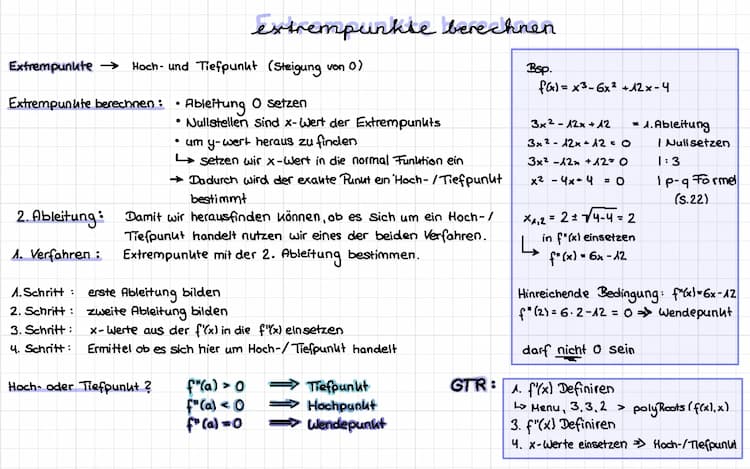 extrempunkte berechnen
Extrempunkte → Hoch- und Tiefpunkt (Steigung von 0)
Extrempunkte berechnen: • Ableitung 0 setzen
• Nullstellen sind x-Wert der Extrempunkts
• um y-wert heraus zu finden
↳ setzen wir x-Wert in die normal Funktion ein
→ Dadurch wird der exakte Punkt ein Hoch-/Tiefpunkt
bestimmt
2. Ableitung: Damit wir herausfinden können, ob es sich um ein Hoch-/
Tiefpunkt handelt nutzen wir eines der beiden Verfahren.
1. Verfahren: Extrempunkte mit der 2. Ableitung bestimmen.
1. Schritt: erste Ableitung bilden
2. Schritt: zweite Ableitung bilden
3. Schritt: x-Werte aus der f'(x) in die f''(x) einsetzen
4. Schritt: Ermittel ob es sich hier um Hoch-/Tiefpunkt handelt
Hoch- oder Tiefpunkt? f''(a) > 0 ⟹ Tiefpunkt
f''(a) < 0 ⟹ Hochpunkt
f''(a) = 0 ⟹ Wendepunkt
Bsp.
f(x) = x³-6x²+12x-4
3x²-12x+12 = 1. Ableitung
3x²-12x+12 = 0 | Nullsetzen
3x²-12x+12 = 0 | :3
x²-4x+4 = 0 | p-q Formel
(S.22)
x₁,₂ = 2 ± √4-4 = 2
in f''(x) einsetzen
↳ f''(x) = 6x-12
Hinreichende Bedingung: f''(x)=6x-12
f''(2) = 6·2-12 = 0 ⇒ Wendepunkt
darf nicht 0 sein
GTR: 1. f'(x) Definiren
↳ Menu, 3,3,2 > polyRoots (f(x),x)
3. f''(x) Definiren
4. x-Werte einsetzen ⇒ Hoch-/Tiefpunkt